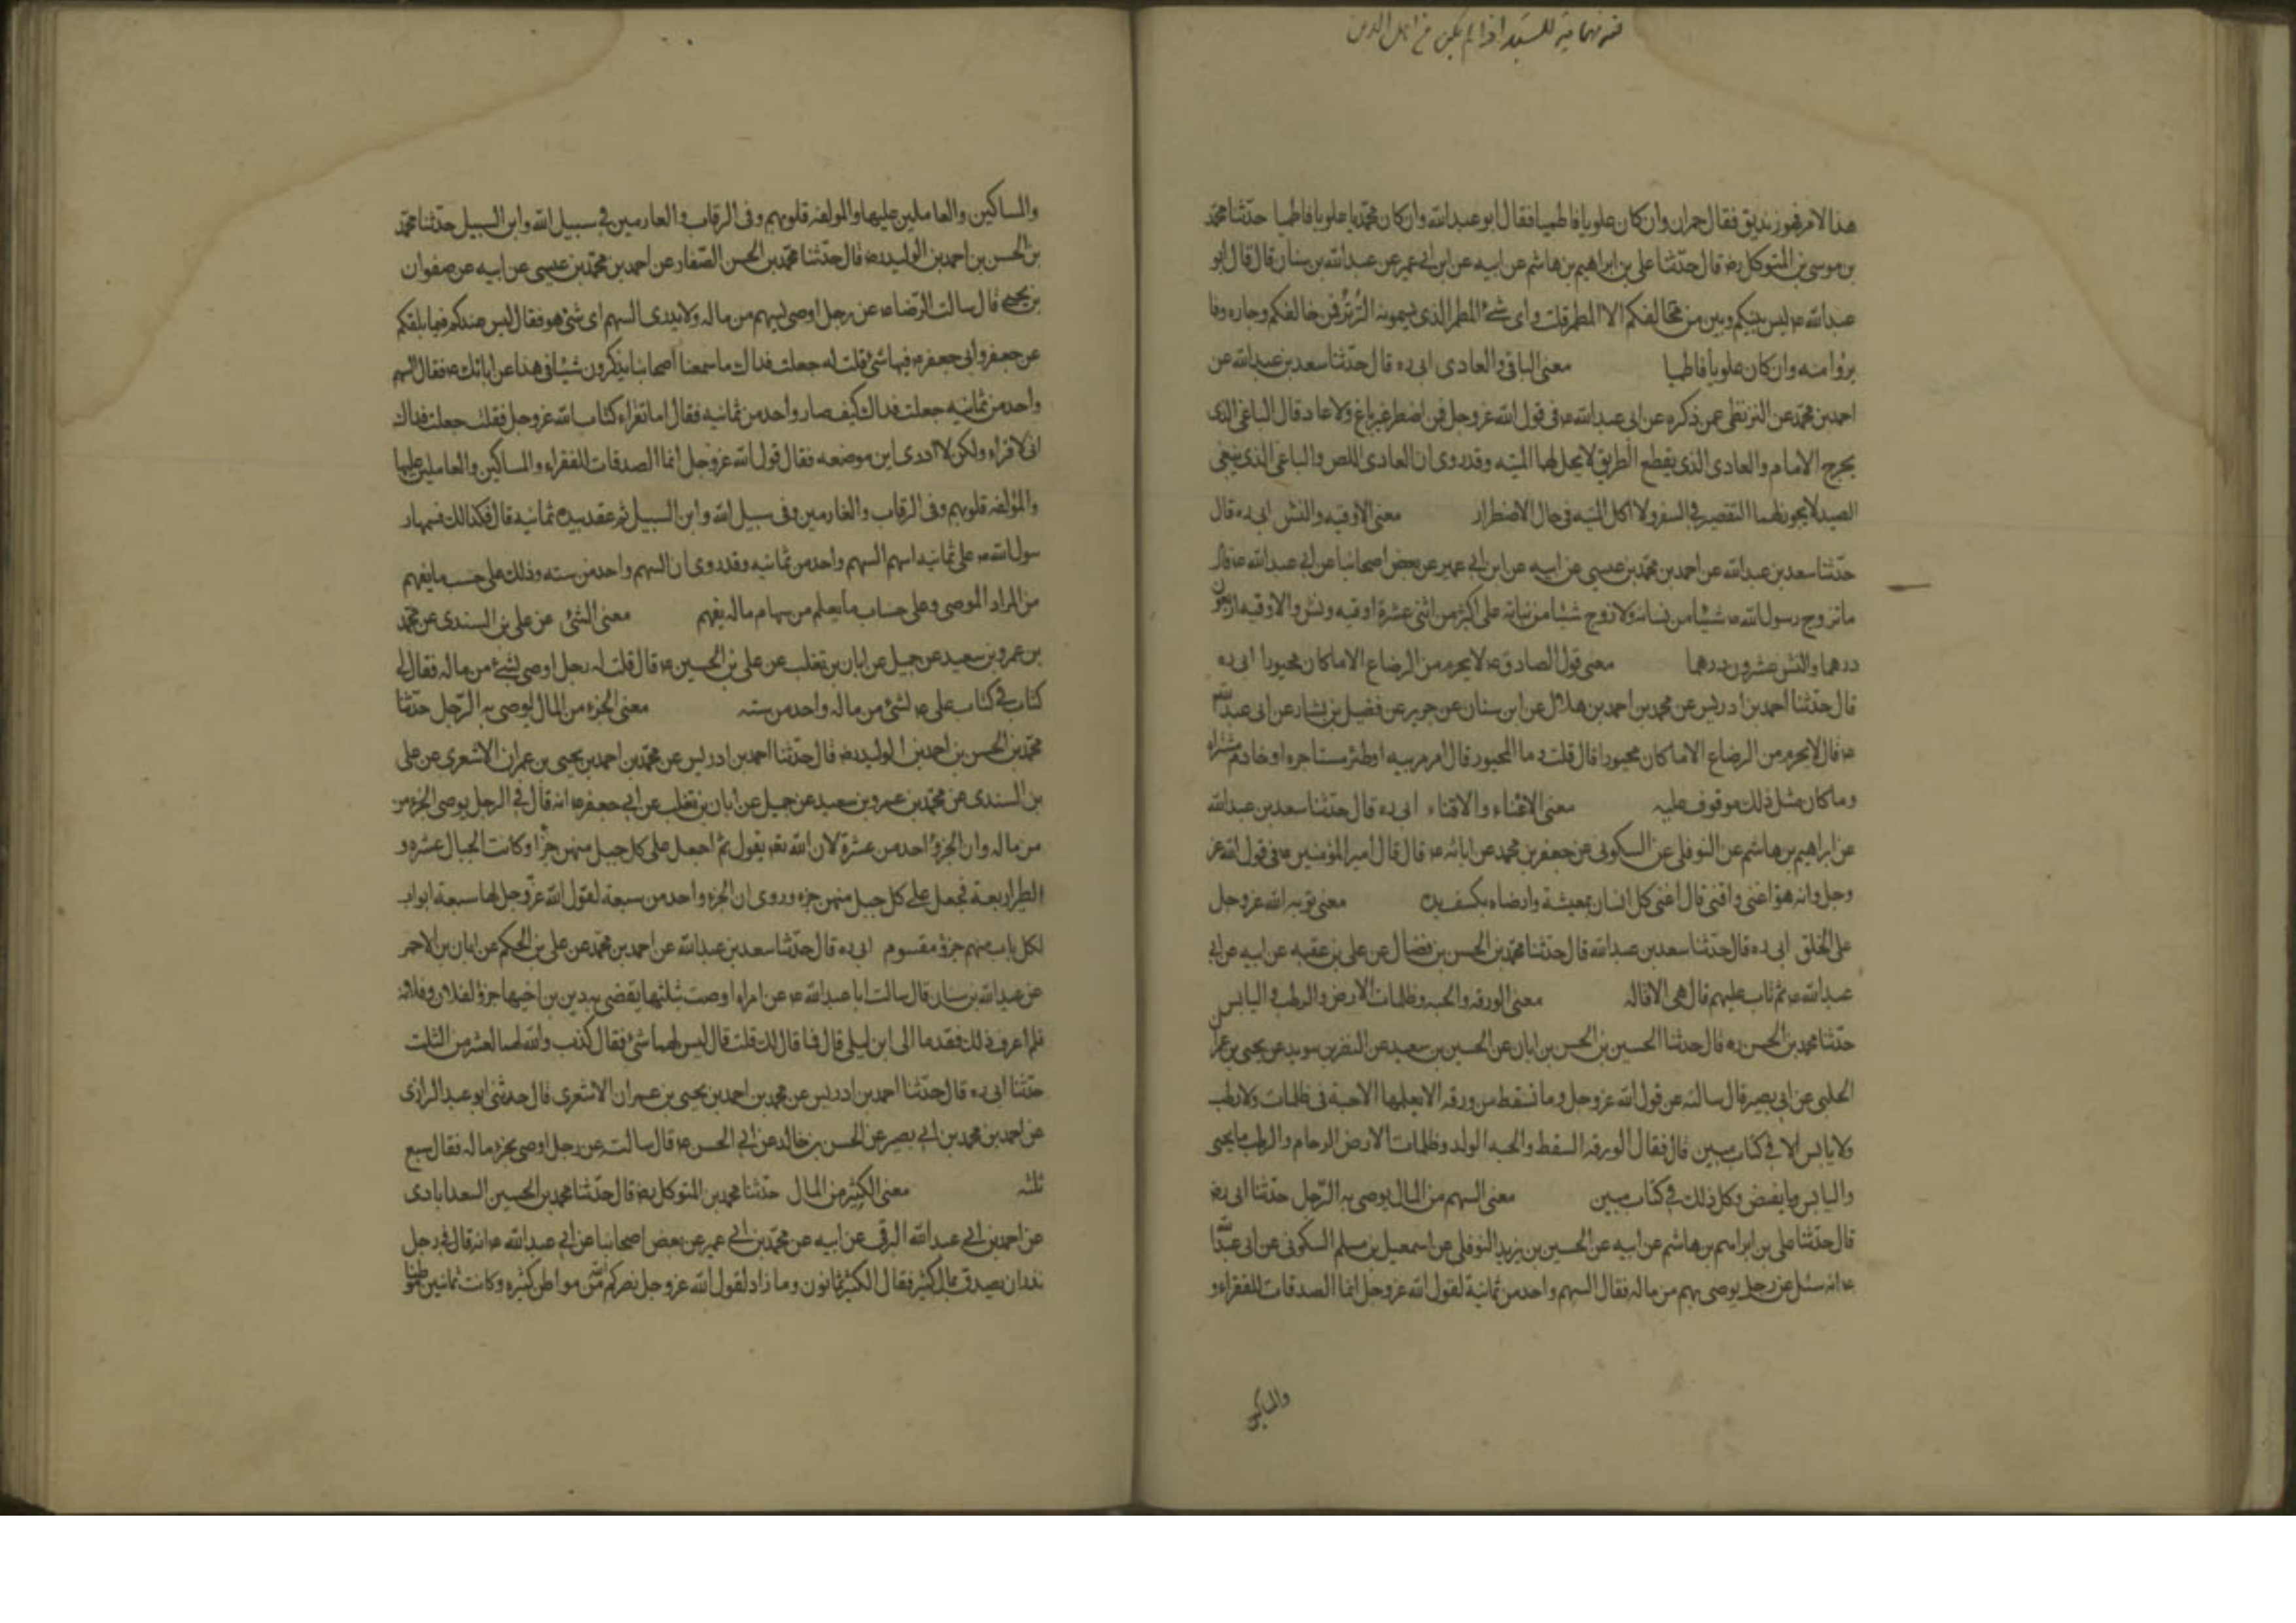 هذا الامر فهو زنديق فقال حمران وان كان علويا فاطميا فقال ابو عبدالله وان كان محمديا علويا فاطميا حدثنا محمد
بن موسى بن المتوكل ره قال حدثنا على بن ابراهيم بن هاشم عن ابيه عن ابن ابى عمير عن عبدالله بن سنان قال قال ابو
عبدالله ع ليس بينكم وبين من خالفكم الا المطمر قلت واى شئ المطمر الذى تسمونه التر فمن خالفكم وجاره فا
برؤا منه وان كان علويا فاطميا معنى الباقى والعادى ابى ره قال حدثنا سعد بن عبدالله عن
احمد بن محمد عن البزنطى عمن ذكره عن ابى عبدالله ع فى قول الله عز وجل فمن اضطر غير باغ ولا عاد قال الباغى الذى
يخرج الامام والعادى الذى يقطع الطريق لا يحل لهما الميته وقد روى ان العادى اللص والباغى الذى يبغى
الصيد لا يجوز لهما التقصير فى السفر ولا اكل الميته فى حال الاضطرار معنى الاوقيه والنش ابى ره قال
حدثنا سعد بن عبدالله عن احمد بن محمد بن عيسى عن ابيه عن ابن ابى عمير عن بعض اصحابنا عن ابى عبدالله ع قال
ما تزوج رسول الله ص شيئا من نسائه ولا زوج شيئا من بناته على اكثر من اثنى عشرة اوقيه ونش والاوقيه اربعون
درهما والنش عشرون درهما معنى قول الصادق ع لا يحرم من الرضاع الا ما كان مجبورا ابى ره
قال حدثنا احمد بن ادريس عن محمد بن احمد بن هلال عن ابن سنان عن حريز عن فضيل بن يسار عن ابى عبدالله
ع قال لا يحرم من الرضاع الا ما كان مجبورا قال قلت وما المجبور قال ام مربيه او ظئر مستاجره او خادم مشتراه
وما كان مثل ذلك موقوف عليه معنى الاغناء والاقناء ابى ره قال حدثنا سعد بن عبدالله
عن ابراهيم بن هاشم عن النوفلى عن السكونى عن جعفر بن محمد عن ابائه ع قال قال امير المؤمنين ع فى قول الله عز
وجل وانه هو اغنى واقنى قال اغنى كل انسان بمعيشة وارضاه بكسب يده معنى توبه الله عز وجل
على الخلق ابى ره قال حدثنا سعد بن عبدالله قال حدثنا محمد بن الحسن بن فضال عن على بن عقبه عن ابيه عن ابى
عبدالله ع ثم تاب عليهم قال هى الاقاله معنى الورقه والحبه وظلمات الارض والرطب واليابس
حدثنا محمد بن الحسن ره قال حدثنا الحسين بن الحسن بن ابان عن الحسين بن سعيد عن النضر بن سويد عن يحيى بن عمران
الحلبى عن ابى بصير قال سالته عن قول الله عز وجل وما تسقط من ورقه الا يعلمها الا حبة فى ظلمات ولا رطب
ولا يابس الا فى كتاب مبين قال فقال الورقه السقط والحبه الولد وظلمات الارض الارحام والرطب ما يحيى
واليابس ما يغيض وكل ذلك فى كتاب مبين معنى السهم من المال يوصى به الرجل حدثنا ابى ره
قال حدثنا على بن ابراهيم بن هاشم عن ابيه عن الحسين بن يزيد النوفلى عن اسمعيل بن مسلم السكونى عن ابى عبدالله
ع انه سئل عن رجل يوصى بسهم من ماله فقال السهم واحد من ثمانية لقول الله عز وجل انما الصدقات للفقراء و
والمساكين
والمساكين والعاملين عليها والمولفه قلوبهم وفى الرقاب والغارمين فى سبيل الله وابن السبيل حدثنا محمد
بن الحسن بن احمد بن الوليد ره قال حدثنا محمد بن الحسن الصفار عن احمد بن محمد بن عيسى عن ابيه عن صفوان
بن يحيى قال سالت الرضا ع عن رجل اوصى بسهم من ماله ولا يدرى السهم اى شئ هو فقال ليس عندكم فيما بلغكم
عن جعفر وابى جعفر ع فيها شئ قلت له جعلت فداك ما سمعنا اصحابنا يذكرون شيئا فى هذا عن ابائك ع فقال السهم
واحد من ثمانيه جعلت فداك كيف صار واحد من ثمانيه فقال اما تقراء كتاب الله عز وجل فقلت جعلت فداك
انى لاقراء ولكن لا ادرى اين موضعه فقال قول الله عز وجل انما الصدقات للفقراء والمساكين والعاملين عليها
والمؤلفه قلوبهم وفى الرقاب والغارمين وفى سبيل الله وابن السبيل ثم عقد بيده ثمانيه قال فكذالك قسمها ر
سول الله ص على ثمانيه اسهم السهم واحد من ثمانيه وقد روى ان السهم واحد من سته وذلك على حسب ما يفهم
من المراد الموصى وعلى حساب ما يعلم من سهام ماله بفهم معنى الشئ عن على بن السندى عن محمد
بن عمرو بن سعيد عن جميل عن ابان بن تغلب عن على بن الحسين ع قال قلت له رجل اوصى بشئ من ماله فقال لى
كتاب فى كتاب على ع لشئ من ماله واحد من سته معنى الجزء من المال يوصى به الرجل حدثنا
محمد بن الحسن بن احمد بن الوليد ره قال حدثنا احمد بن ادريس عن محمد بن احمد بن يحيى بن عمران الاشعرى عن على
بن السندى عن محمد بن عمرو بن سعيد عن جميل عن ابان بن تغلب عن ابى جعفر ع انه قال فى الرجل يوصى الجزء من
من ماله وان الجزؤ احد من عشرة لان الله تعه يقول ثم اجعل على كل جبل منهن جزءا وكانت الجبال عشره و
الطير اربعة فجعل على كل جبل منهن جزء وروى ان الجزء واحد من سبعة لقول الله عز وجل لها سبعة ابواب
لكل باب منهم جزؤ مقسوم ابى ره قال حدثنا سعد بن عبدالله عن احمد بن محمد عن على بن الحكم عن ابان بن الاحمر
عن عبدالله بن سنان قال سالت ابا عبدالله ع عن امراه اوصت بثلثها يقضى به دين بن اخيها جزؤ لفلان وفلانه
فلم اعرف ذلك فقدما الى ابن ليلى قال فما قال لك قلت قال ليس لهما شئ فقال كذب والله لهما العشر من الثلث
حدثنا ابى ره قال حدثنا احمد بن ادريس عن محمد بن احمد بن يحيى بن عمران الاشعرى قال حدثنى ابو عبد الرازى
عن احمد بن محمد بن ابى بصير عن الحسن بن خالد عن ابى الحسن ع قال سالت عن رجل اوصى بجزء ماله فقال سبع
ثلثه معنى الكثير من المال حدثنا محمد بن المتوكل ره قال حدثنا محمد بن الحسين السعدابادى
عن احمد بن ابى عبدالله البرقى عن ابيه عن محمد بن ابى عمير عن بعض اصحابنا عن ابى عبدالله ع انه قال فى رجل
نذر ان يصدق بمال كثير فقال الكثير ثمانون وما زاد لقول الله عز وجل نصركم الله من مواطن كثيره وكانت ثمانين موطنا